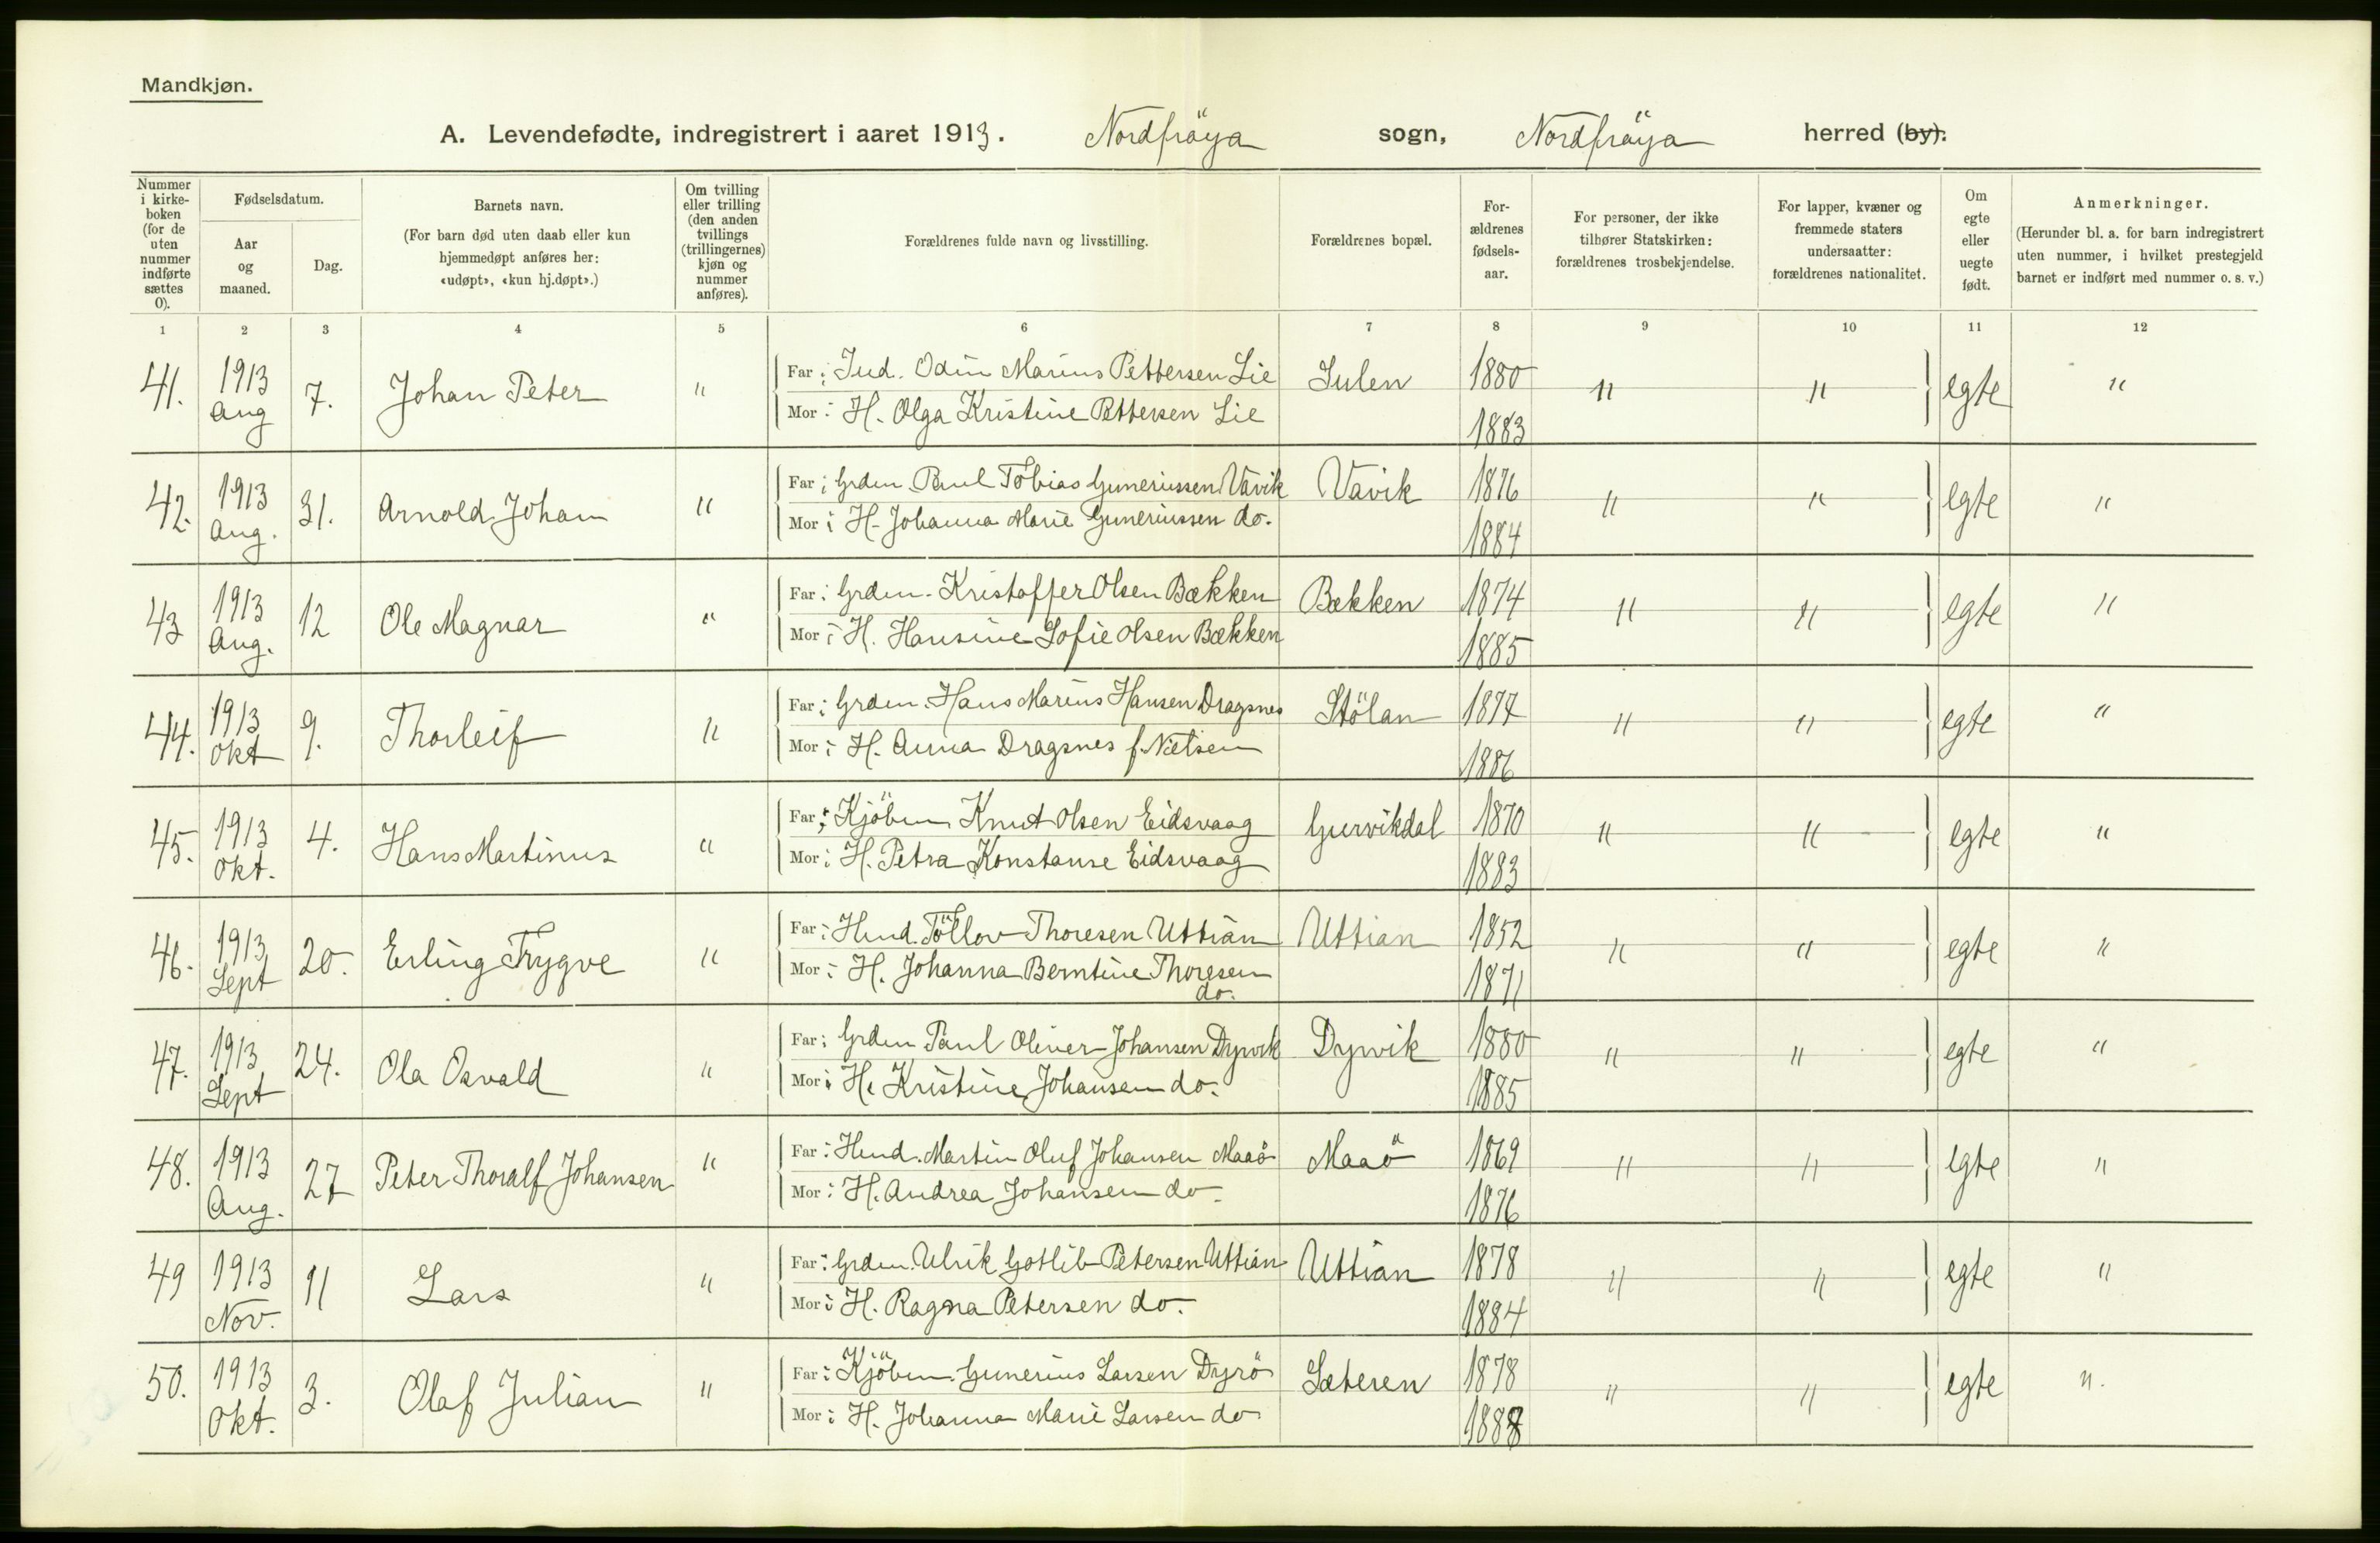 Mandkjøn.
A. Levendefødte, indregistrert i aaret 1913. Nordfröya sogn, Nordfröya herred (by).
Nummer i kirke-boken (for de uten nummer indførte sættes 0).
Fødselsdatum.
Aar og maaned.
Dag.
Barnets navn.
(For barn død uten daab eller kun hjemmedøpt anføres her: «udøpt», «kun hj.døpt».)
Om tvilling eller trilling (den anden tvillings (trillingernes) kjøn og nummer anføres).
Forældrenes fulde navn og livsstilling.
Forældrenes bopæl.
For-ældrenes fødsels-aar.
For personer, der ikke tilhører Statskirken: forældrenes trosbekjendelse.
For lapper, kvæner og fremmede staters undersaatter: forældrenes nationalitet.
Om egte eller uegte født.
Anmerkninger.
(Herunder bl. a. for barn indregistrert uten nummer, i hvilket prestegjeld barnet er indført med nummer o. s. v.)
1 2 3 4 5 6 7 8 9 10 11 12
41. 1913 Aug 7. Johan Peter " Far: Ind. Odin Marius Pettersen Lie Sulen 1880 " " egte "
Mor: H. Olga Kristine Pettersen Lie 1883
42. 1913 Aug. 31. Arnold Johan " Far: Grdm. Paul Tobias Guneriussen Vavik Vavik 1876 " " egte "
Mor: H. Johanna Marie Guneriussen do. 1884
43 1913 Aug. 12 Ole Magnar " Far: Grdm. Kristoffer Olsen Bækken Bækken 1874 " " egte "
Mor: H. Hansine Sofie Olsen Bækken 1885
44. 1913 Okt 9. Thorleif " Far: Grdm. Hans Marius Hansen Dragsnes Stölan 1877 " " egte "
Mor: H. Anna Dragsnes f. Nielsen 1886
45. 1913 Okt. 4. Hans Martinus " Far: Kjöbm. Knut Olsen Eidsvaag Gurvikdal 1870 " " egte "
Mor: H. Petra Konstanse Eidsvaag 1883
46. 1913 Sept 20. Erling Trygve " Far: Hmd. Töllov Thoresen Uttian Uttian 1852 " " egte "
Mor: H. Johanna Berntine Thoresen do. 1871
47. 1913 Sept 24. Ola Osvald " Far: Grdm Paul Oliver Johansen Dyrvik Dyrvik 1880 " " egte "
Mor: H. Kristine Johansen do. 1885
48. 1913 Aug. 27 Peter Thoralf Johansen " Far: Hmd. Martin Oluf Johansen Maaö Maaö 1869 " " egte "
Mor: H. Andrea Johansen do. 1876
49 1913 Nov. 11 Lars " Far: Grdm. Ulrik Gotlib Petersen Uttian Uttian 1878 " " egte "
Mor: H. Ragna Petersen do. 1884
50. 1913 Okt. 3. Olaf Julian " Far: Kjöbm. Gunerius Larsen Dyrö Sæteren 1878 " " egte ".
Mor: H. Johanna Marie Larsen do